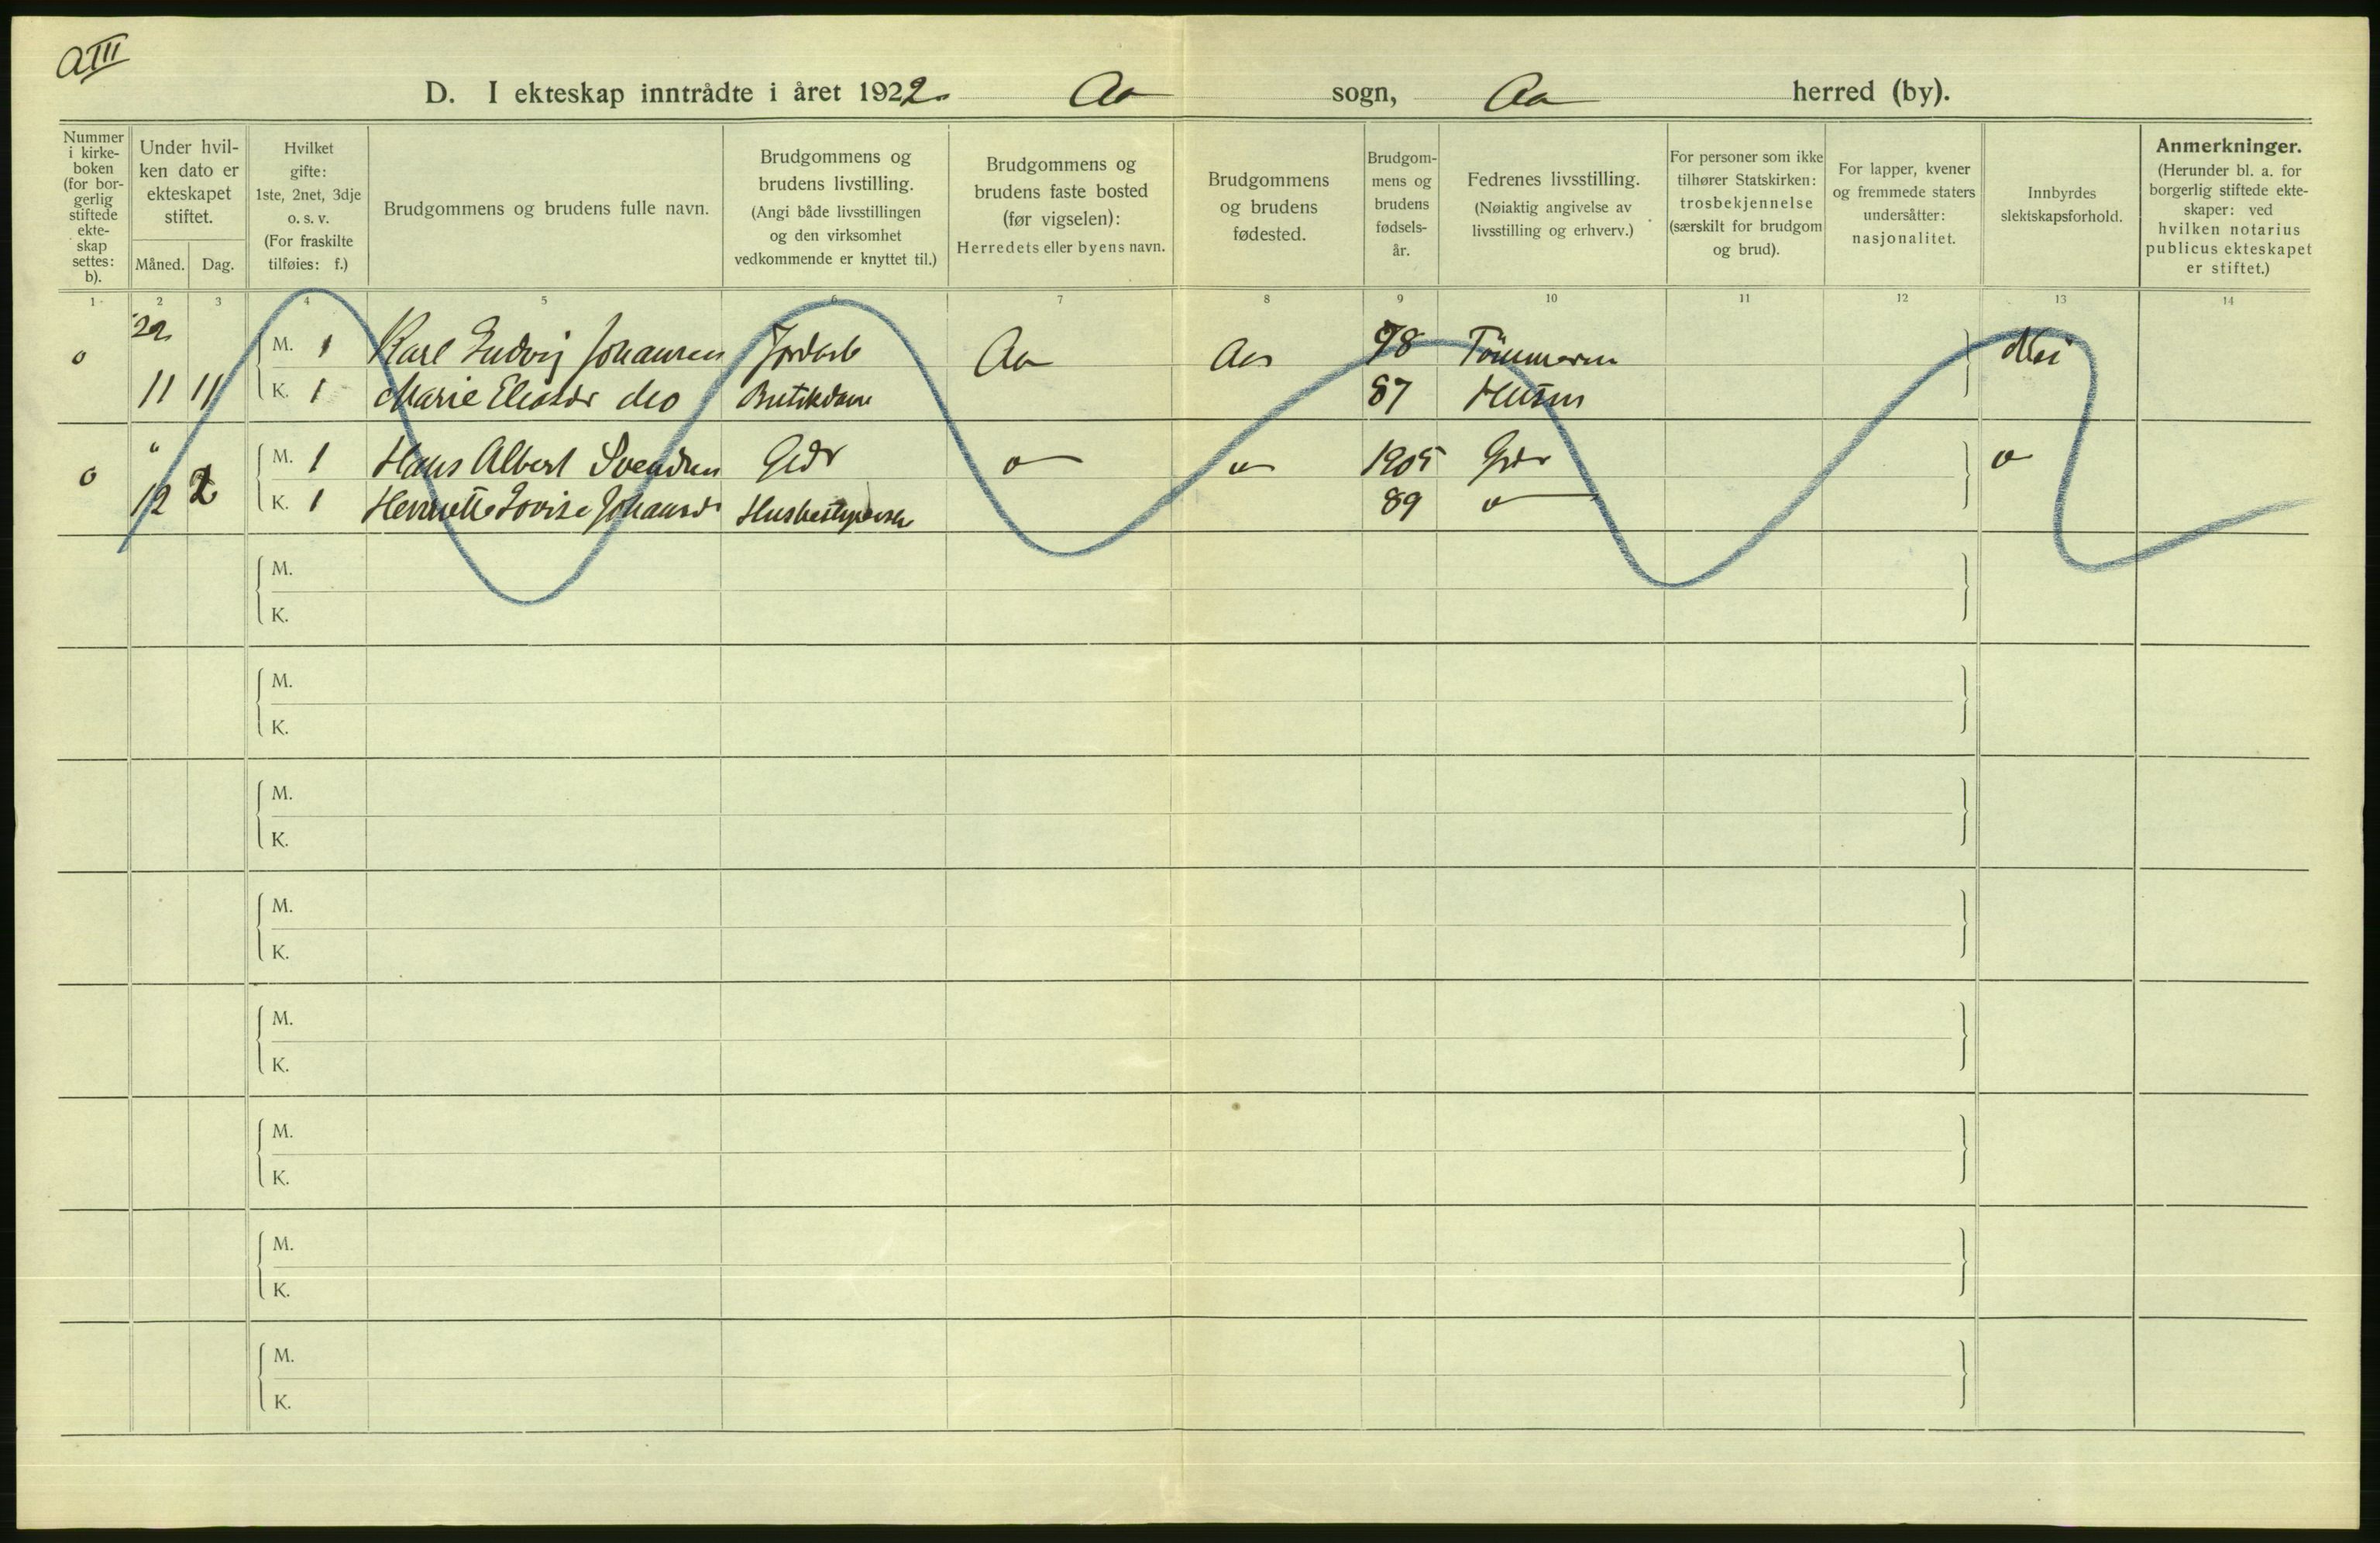 aIII
D. I ekteskap inntrådte i året 1922 Aa sogn, Aa herred (by).
Nummer i kirke- boken (for bor- gerlig stiftede ekte- skap settes: b).
Under hvil- ken dato er ekteskapet stiftet.
Måned. Dag.
Hvilket gifte: 1ste, 2net, 3dje o. s. v. (For fraskilte tilføies: f.)
Brudgommens og brudens fulle navn.
Brudgommens og brudens livstilling. (Angi både livsstillingen og den virksomhet vedkommende er knyttet til.)
Brudgommens og brudens faste bosted (før vigselen): Herredets eller byens navn.
Brudgommens og brudens fødested.
Brudgom- mens og brudens fødsels- år.
Fedrenes livsstilling. (Nøiaktig angivelse av livsstilling og erhverv.)
For personer som ikke tilhører Statskirken: trosbekjennelse (særskilt for brudgom og brud).
For lapper, kvener og fremmede staters undersåtter: nasjonalitet.
Innbyrdes slektskapsforhold.
Anmerkninger. (Herunder bl. a. for borgerlig stiftede ekte- skaper: ved hvilken notarius publicus ekteskapet er stiftet.)
1 2 3 4 5 6 7 8 9 10 11 12 13 14
'22
o M. 1 Karl Ludvig Johansen Jordarb Aa Aa 98 Nei
11 11 K. 1 Marie Butikdame 87
" M. 1 Hans Albert Svendsen Gdr 1905 Gdr
o 12 2 K. 1 Henriette Lovise Husbestyrerske 89
M.
K.
M.
K.
M.
K.
M.
K.
M.
K.
M.
K.
M.
K.
M.
K.